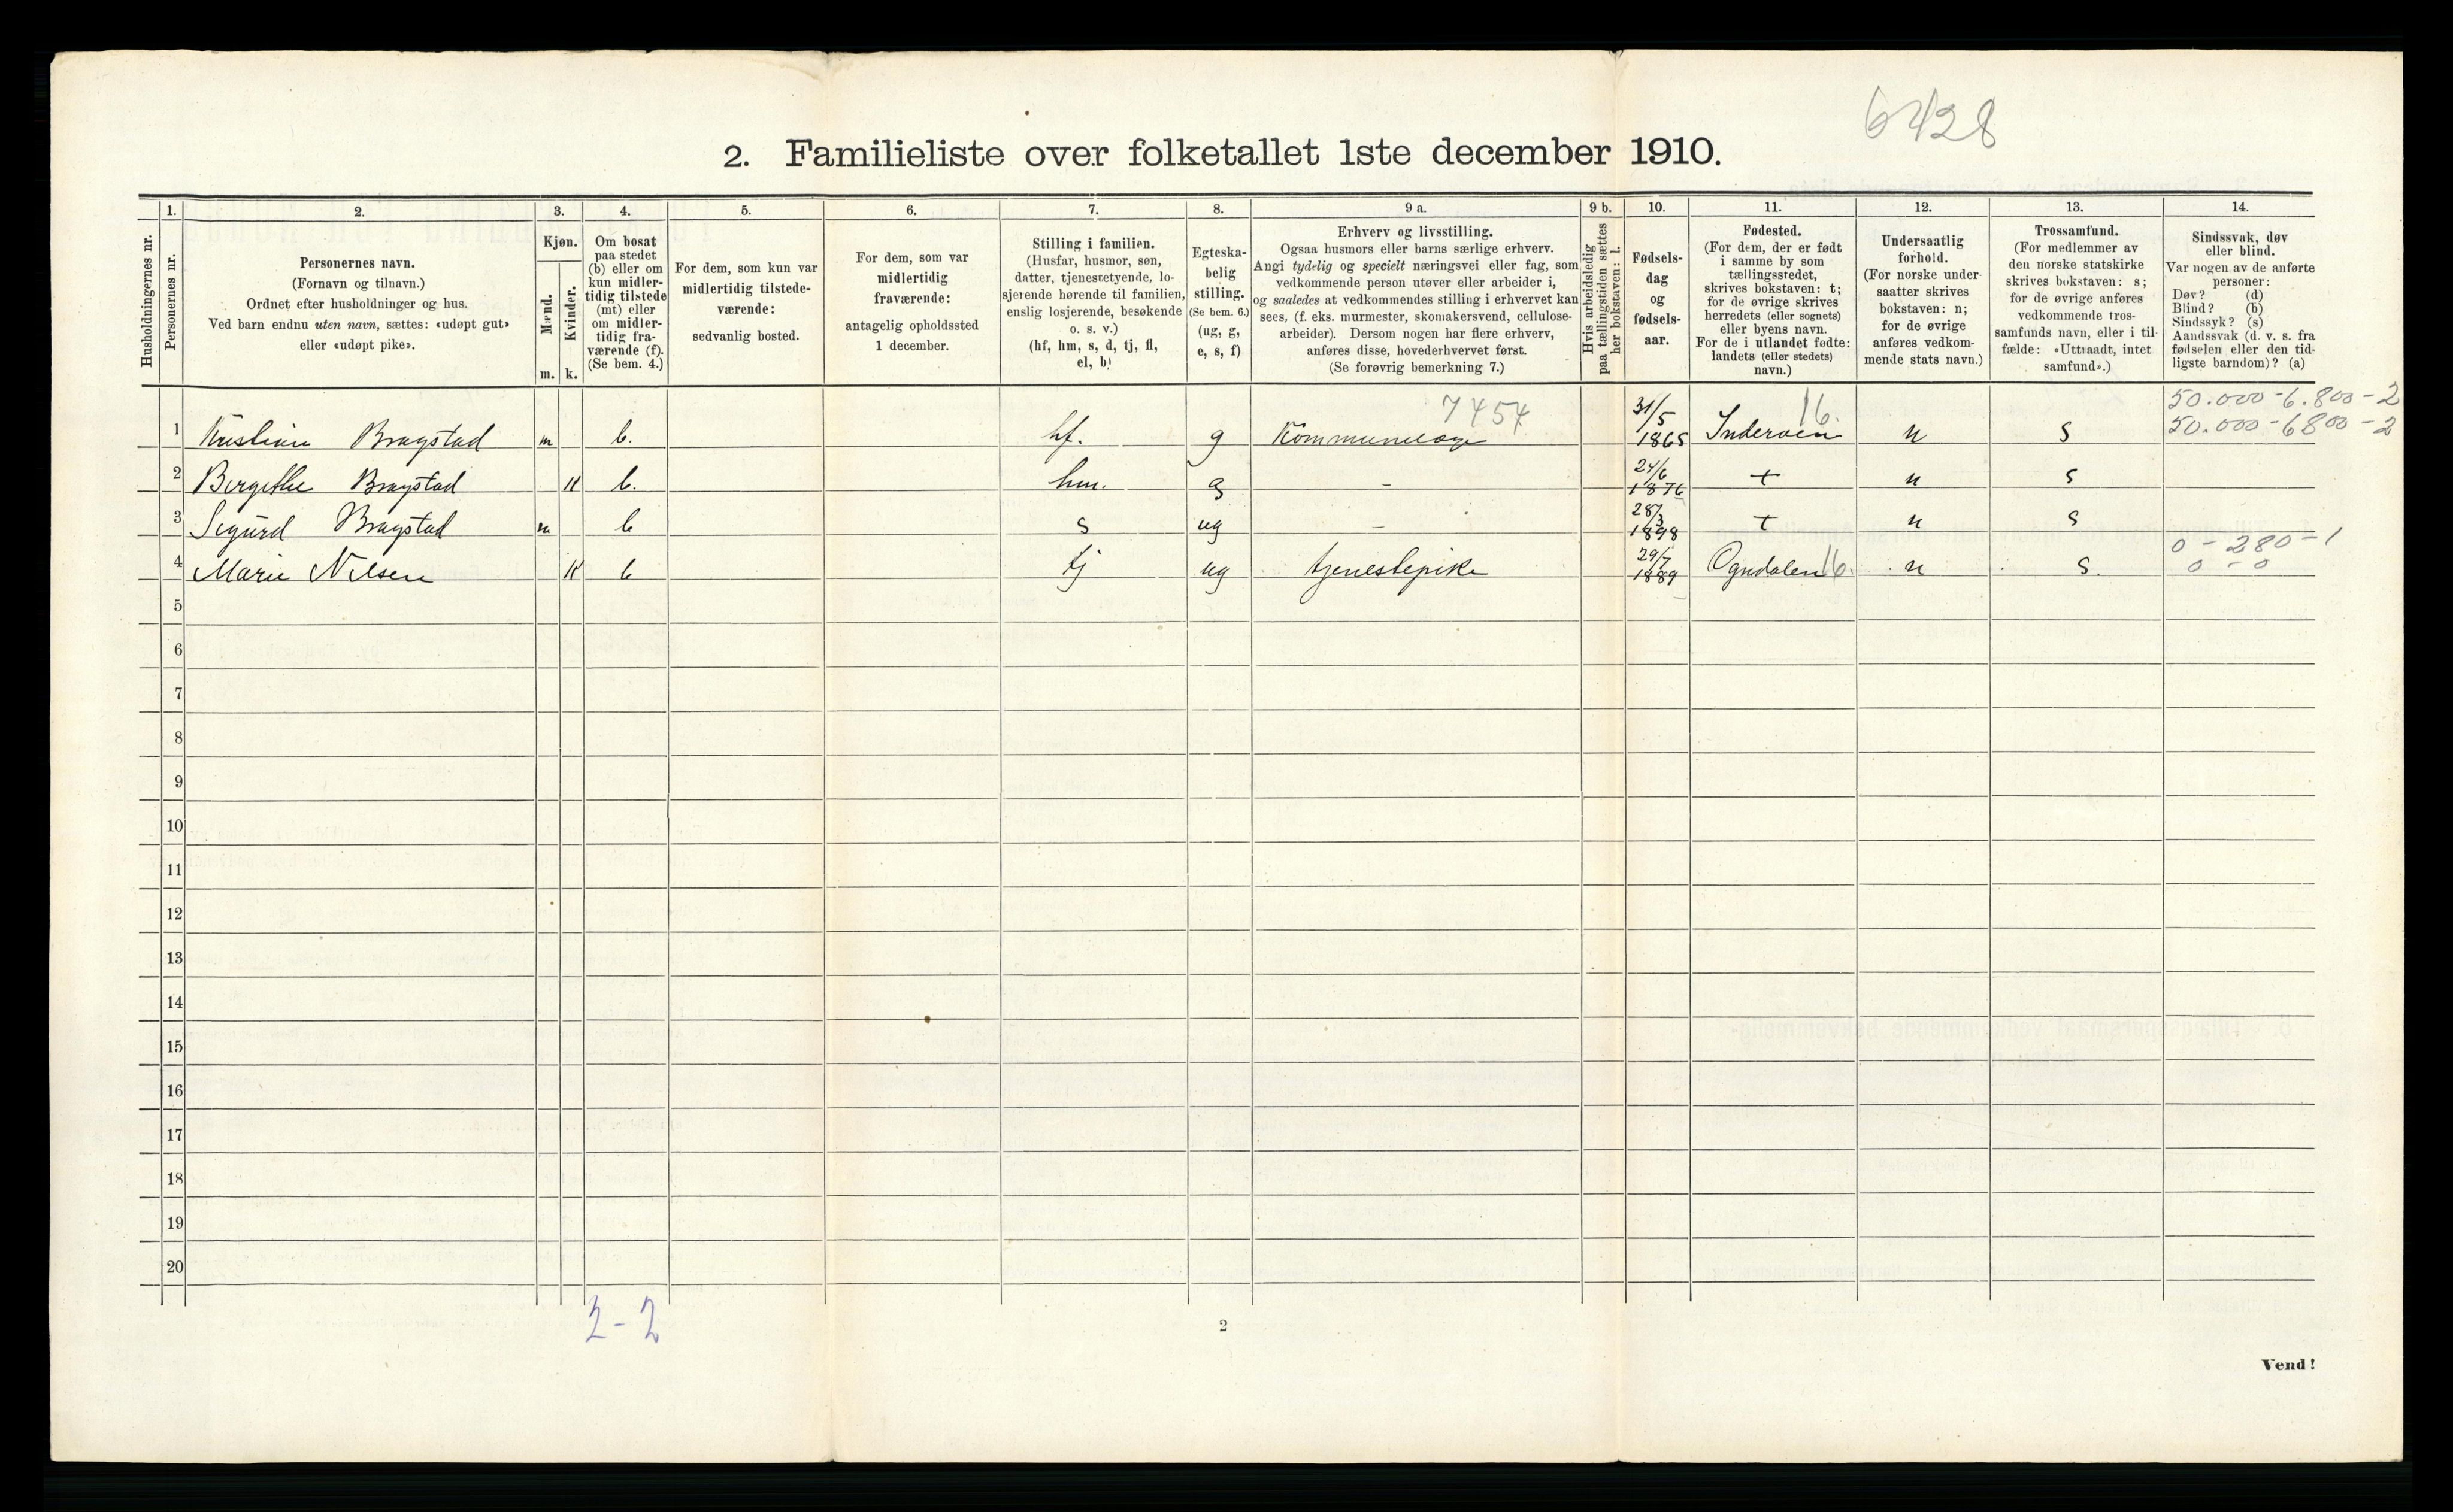 6428
2. Familieliste over folketallet 1ste december 1910.
Husholdningernes nr.
1. Personernes nr.
2. Personernes navn. (Fornavn og tilnavn.) Ordnet efter husholdninger og hus. Ved barn endnu uten navn, sættes: «udøpt gut» eller «udøpt pike».
3. Kjøn. Mænd. m. Kvinder. k.
4. Om bosat paa stedet (b) eller om kun midler-tidig tilstede (mt) eller om midler-tidig fra-værende (f). (Se bem. 4.)
5. For dem, som kun var midlertidig tilstede-værende: sedvanlig bosted.
6. For dem, som var midlertidig fraværende: antagelig opholdssted 1 december.
7. Stilling i familien. (Husfar, husmor, søn, datter, tjenestetyende, lo-sjerende hørende til familien, enslig losjerende, besøkende o. s. v.) (hf, hm, s, d, tj, fl, el, b)
8. Egteska-belig stilling. (Se bem. 6.) (ug, g, e, s, f)
9 a. Erhverv og livsstilling. Ogsaa husmors eller barns særlige erhverv. Angi tydelig og specielt næringsvei eller fag, som vedkommende person utøver eller arbeider i, og saaledes at vedkommendes stilling i erhvervet kan sees, (f. eks. murmester, skomakersvend, cellulose-arbeider). Dersom nogen har flere erhverv, anføres disse, hovederhvervet først. (Se forøvrig bemerkning 7.)
9 b. Hvis arbeidsledig paa tællingstiden sættes her bokstaven: l.
10. Fødsels-dag og fødsels-aar.
11. Fødested. (For dem, der er født i samme by som tællingsstedet, skrives bokstaven: t; for de øvrige skrives herredets (eller sognets) eller byens navn. For de i utlandet fødte: landets (eller stedets) navn.)
12. Undersaatlig forhold. (For norske under-saatter skrives bokstaven: n; for de øvrige anføres vedkom-mende stats navn.)
13. Trossamfund. (For medlemmer av den norske statskirke skrives bokstaven: s; for de øvrige anføres vedkommende tros-samfunds navn, eller i til-fælde: «Uttraadt, intet samfund».)
14. Sindssvak, døv eller blind. Var nogen av de anførte personer: Døv? (d) Blind? (b) Sindssyk? (s) Aandssvak (d. v. s. fra fødselen eller den tid-ligste barndom)? (a)
7454 16. 50.000-6.800-2
1 Kristian Bragstad m b. hf. g 31/5 1865 Inderøen n s 50.000-6800-2
2 Bergithe Bragstad K b. hm. g - 24/6 1876 t n s
3 Sigurd Bragstad m b s ug - 28/3 1898 t n s
0-280-1
4 Marie Nilsen K b tj ug tjenestepike 29/7 1889 Ogndalen 16. n s. 0-0
5
6
7
8
9
10
11
12
13
14
15
16
17
18
19
20
2-2
2
Vend!